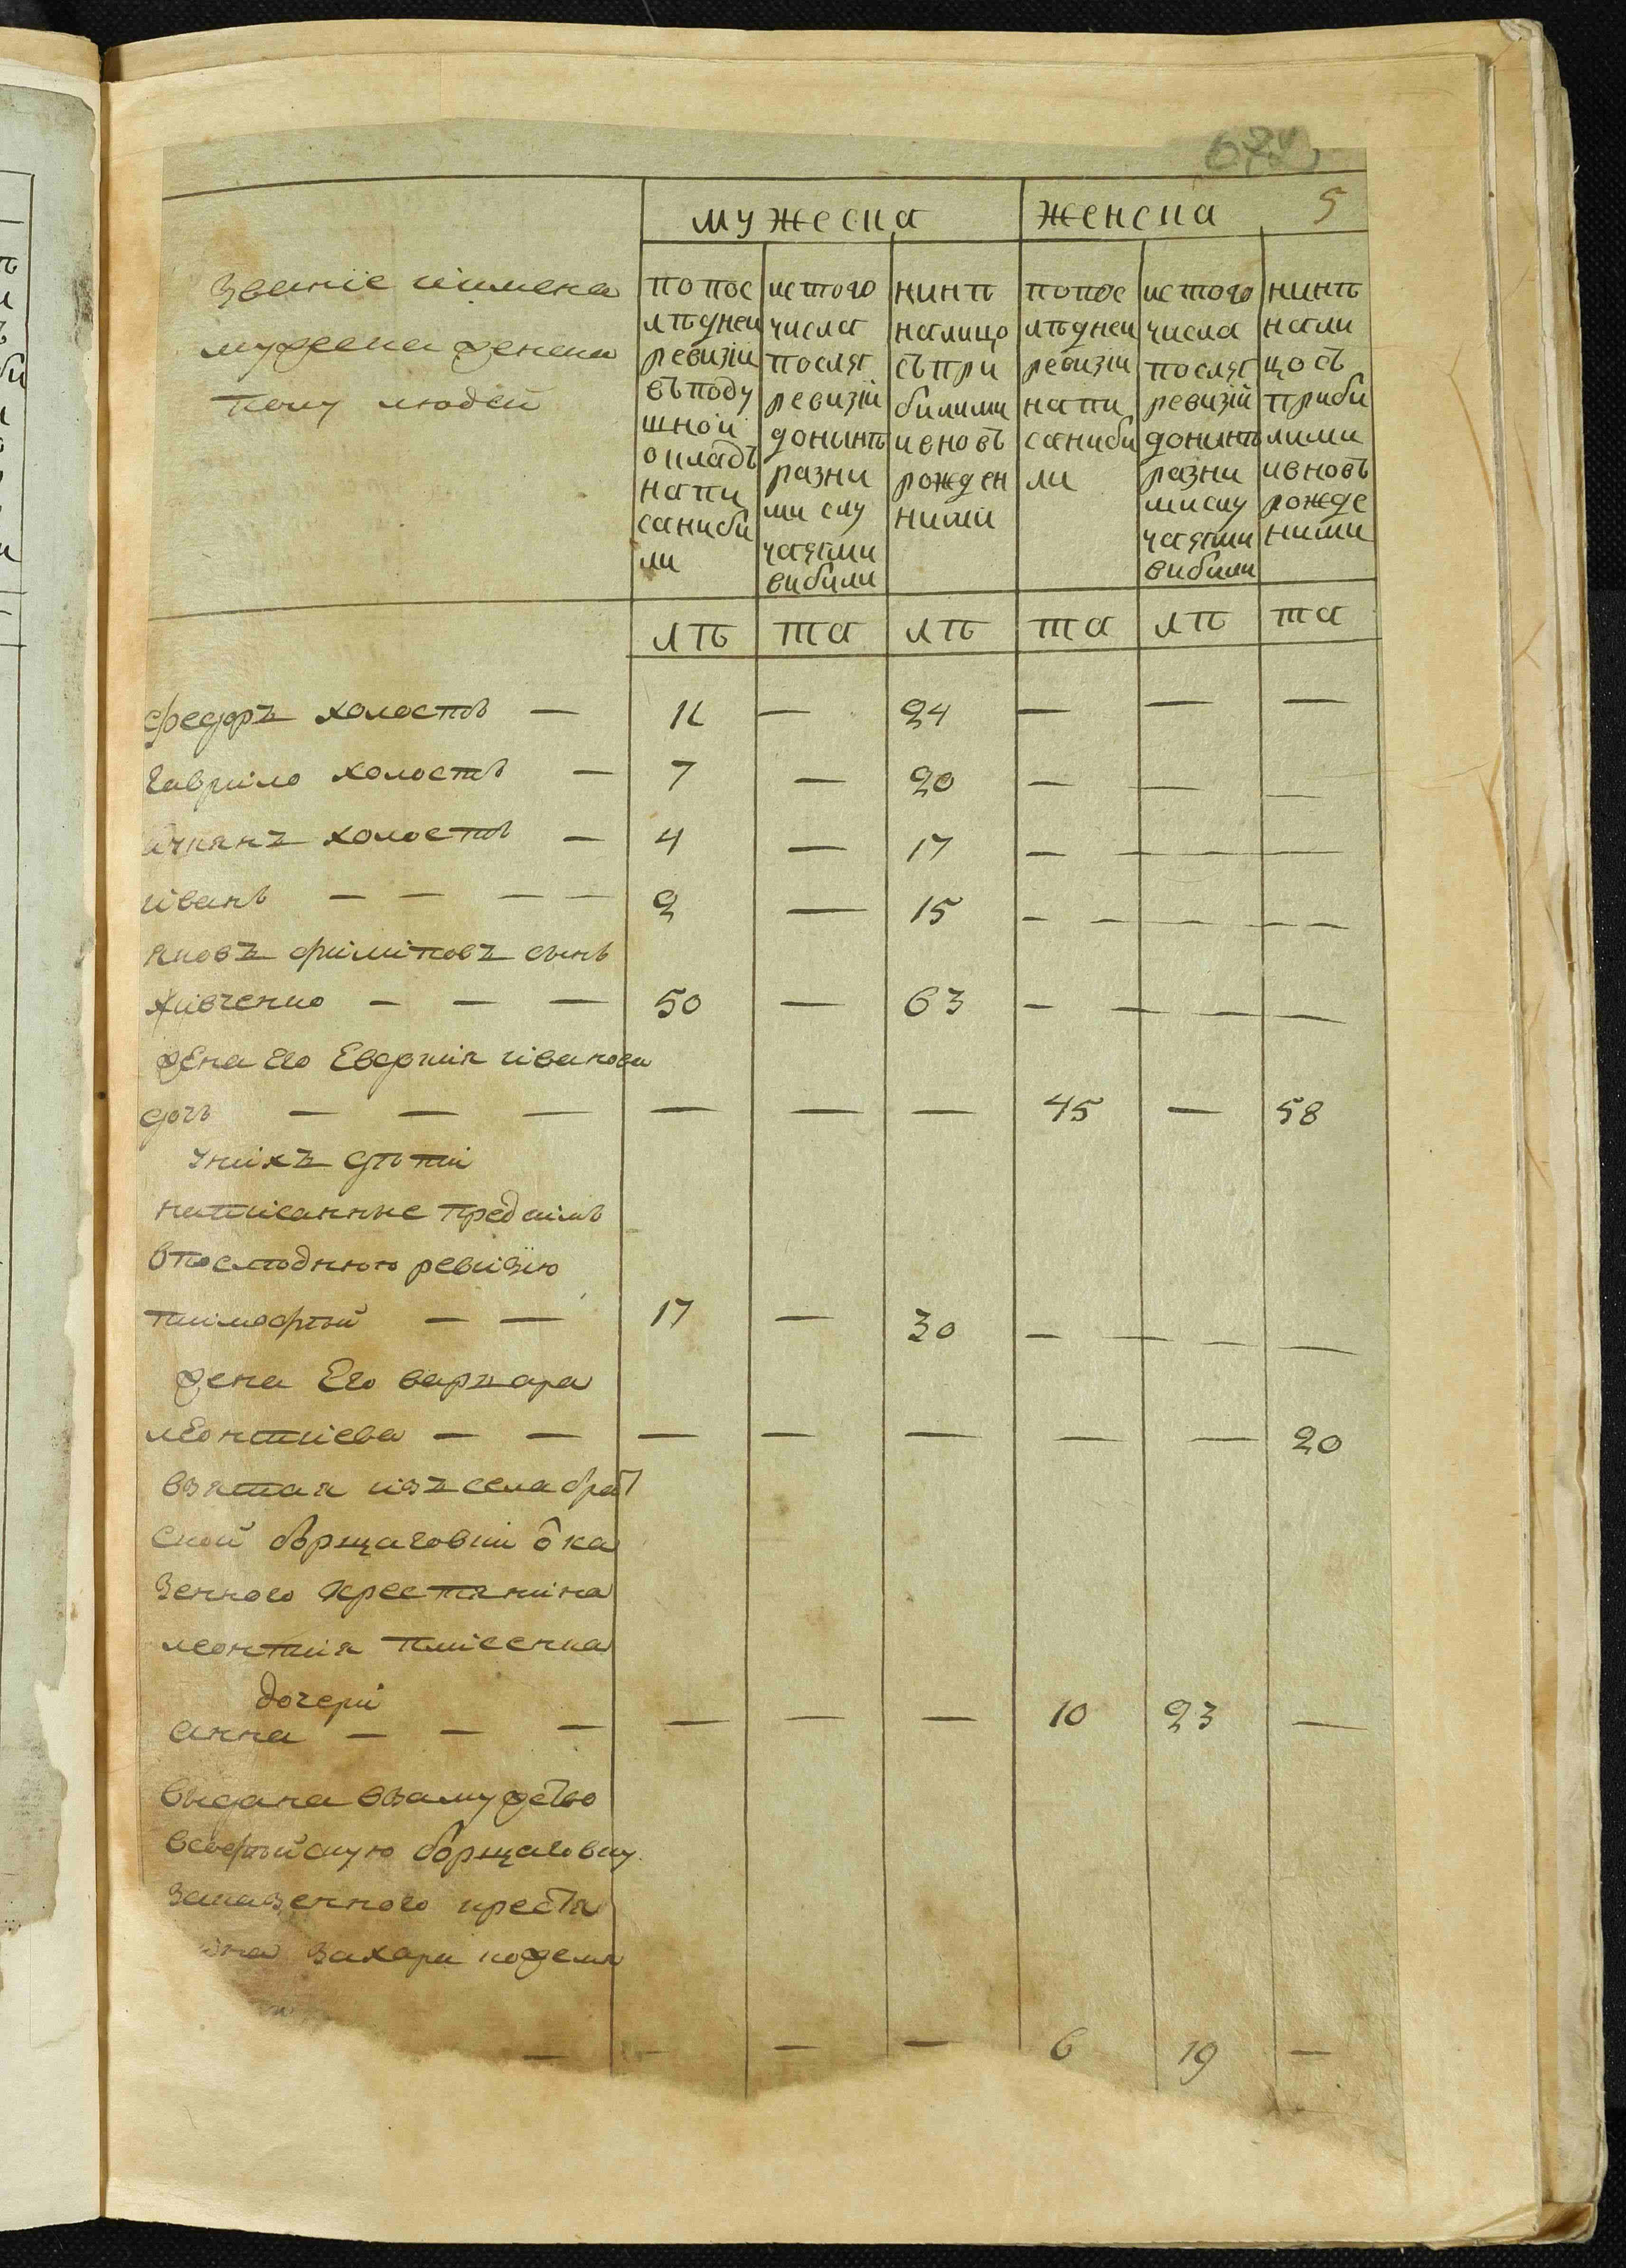 5
мужеска женска
Званіе иимена
мужеска женска
полу людей
попос лѣдней ревизіи въподу шной окладъ напи саниби ли
истого числа послѣ ревизій донынѣ разни ми слу чаями вибили
нинѣ налицо съпри билими ивновъ рожден ними
попос лѣдней ревизіи напи саниби ли
истого числа послѣ ревизій донынѣ разни мислу чаями вибили
нинѣ нали цосъ приби лими ивновъ рожде ними
лѣ та лѣ та лѣ та
федоръ холостъ — 11 — 24 — — —
Гаврило холостъ — 7 — 20 — — —
холостъ — 4 — 17 — — —
иванъ — — — — 2 — 15 — — — — —
яковъ филиповъ сынъ
Живченко — — — 50 — 63 — — — —
жена Его Евфимія иванова
дочь — — — — — — 45 — 58
унихъ дѣти
написанные предсимъ
впослѣднюю ревизію
тимофѣй — — 17 — 30 — — — —
жена Его варвара
леонтиева — — — — — — — 20
взятая изъ села брат
ской борщаговки ока
зенного крестянина
леонтия
дочери
анна — — — — — — 10 23 —
выдана взамужство
всофѣйскую борщаговку
заказенного крестя
ина захари кожемя
— — — — 6 19 —